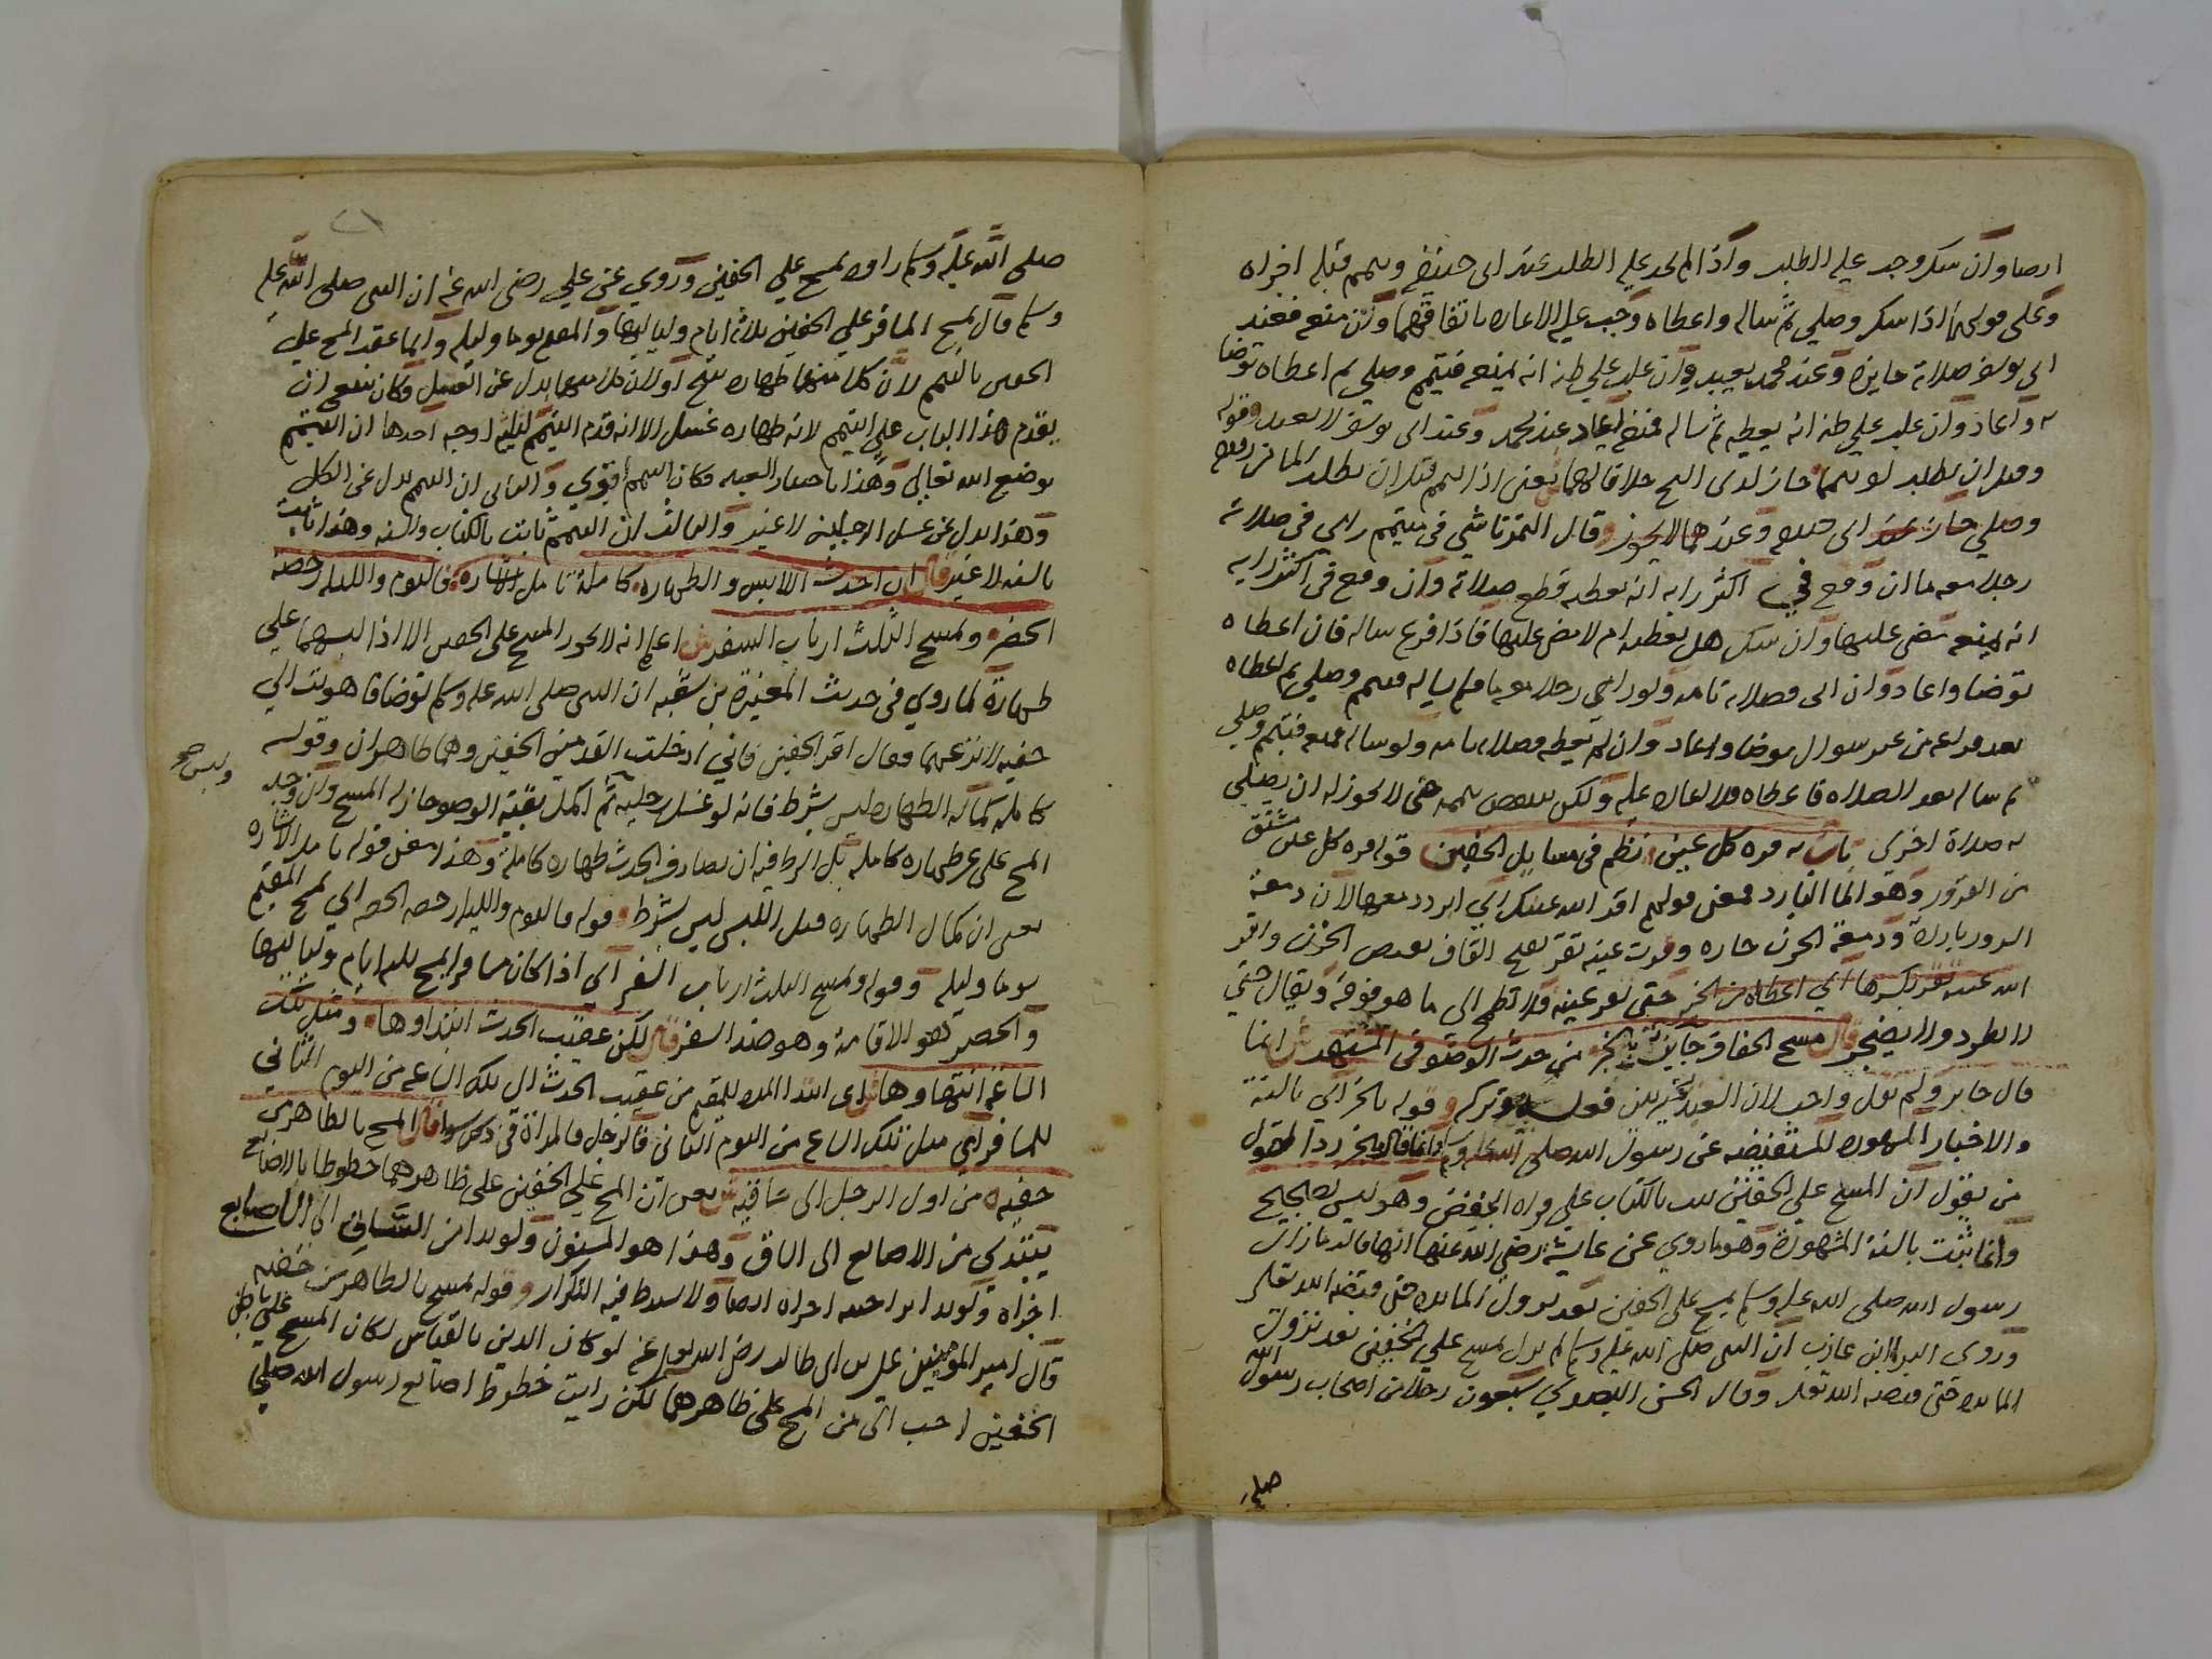 ايضا وان شك وجب عليه الطلب واذا لم يجد عليه الطلب عند ابي حنيفه وتيمم قبله اجزاه
وعلى قولهما اذا شك وصلى ثم ساله واعطاه وجب عليه الاعاده باتفاقهما وان منع فعند
ابي يوسف صلاته جايزه وعند محمد يعيد وان غلب على ظنه انه يمنعه فتيمم وصلى ثم اعطاه توضا
به واعاد وان غلب على ظنه انه يعطيه ثم ساله فمنع اعاد عند محمد وعند ابي يوسف لا يعيد وقوله
وقبل ان يطلب لو تيمما جاز لدى الشيخ خلافا لهما يعني اذا تيمم قبل ان يطلب الما من رفيقه
وصلى جاز عند ابي حنيفه وعندهما لا يجوز وقال التمرتاشي في متيمم راى في صلاته
رجلا معه ما ان وقع في اكثر رايه انه يعطيه قطع صلاته وان وقع في اكثر رايه
انه يمنعه مضى عليها وان شك هل يعطيه ام لا مضى عليها فاذا فرغ ساله فان اعطاه
توضا واعاد وان ابى فصلاته تامه ولو راى رجلا معه ما فلم يساله فتيمم وصلى ثم اعطاه
بعد فراغه من غير سوال توضا واعاد وان لم يعطه فصلاته تامه ولو ساله فمنعه فتيمم وصلى
ثم ساله بعد الصلاه فاعطاه فلا اعاده عليه ولكن ينتقض تيممه حتى لا يجوز له ان يصلي
به صلاة اخرى باب به قره كل عين نظم في مسايل الخفين قوله قره كل عين مشتق
من القرور وهو الما البارد فمعنى قولهم اقر الله عينك اي ابرد دمعها لان دمعة
السرور بارده ودمعة الحزن حاره وقرت عينه تقر بفتح القاف نقيض الحزن واقر
الله عينه يقر بكسرها اي اعطاه من الخير حتى تقر عينه فلا تطمح الى ما هو فوقه ويقال حتى
لا يطرد ولا يضجر قال مسح الخفاف جايز بالخبر من حدث الوضو في المشتهر ش انما
قال جايز ولم يقل واجب لان العبد مخير بين فعله وتركه وقوله بالخبر اي بالسنة
والاخبار المشهوره المستفيضه عن رسول الله صلى الله عليه وسلم وانما قال بالخبر ردا لقول
من يقول ان المسح على الخفين ثبت بالكتاب على قراه الخفض وهو ليس بصحيح
وانما ثبت بالسنة المشهورة وهو ما روي عن عايشة رضي الله عنها انها قالت ما زال
رسول الله صلى الله عليه وسلم يمسح على الخفين بعد نزول المايده حتى قبضه الله تعالى
وروى البرا ابن عازب ان النبي صلى الله عليه وسلم لم يزل يمسح على الخفين بعد نزول
المايده حتى قبضه الله تعالى وقال الحسن البصري سبعون رجلا من اصحاب رسول الله
صلى
صلى الله عليه وسلم راوه يمسح على الخفين وروي عن علي رضى الله عنه ان النبي صلى الله عليه
وسلم قال يمسح المسافر على الخفين ثلاثة ايام ولياليها والمقيم يوما وليله وانما عقد المسح على
الخفين بالتيمم لان كل منهما طهاره مسح او لان كل منهما بدل عن الغسل وكان ينبغي ان
يقدم هذا الباب على التيمم لانه طهاره غسل الا انه قدم التيمم لثلثه اوجه احدها ان التيمم
بوضع الله تعالى وهذا باختيار العبد فكان التيمم اقوى والثاني ان التيمم بدل عن الكل
وهذا بدل عن غسل الرجلين لا غير والثالث ان التيمم ثابت بالكتاب والسنه وهذا ثابت
بالسنه لا غير قال ان احدث اللابس والطهاره كاملة تامل الاشاره فاليوم والليله رخصة
الحضر ومسح الثلث ارباب السفر ش اعلم انه لا يجوز المسح على الخفين الا اذا لبسهما على
طهارة لما روي في حديث المغيرة بن شعبه ان النبي صلى الله عليه وسلم توضا فاهويت الى
خفيه لانزعهما فقال اقر الخفين فاني ادخلت القدمين الخفين وهما طاهران وقوله
وليس هو
كامله كمال الطهاره ليس بشرط فانه لو غسل رجليه ثم اكمل بقية الوضو جاز له المسح وان وجد
المسح على غير طهاره كامله بل الشرط فيه ان يصادف الحدث طهاره كاملة وهذا معنى قوله تامل الاشاره
يعني ان كمال الطهاره قبل اللبس ليس بشرط قوله فاليوم والليله رخصه الحضر اي يمسح المقيم
يوما وليله وقوله ومسح الثلث ارباب السفر اي اذا كان مسافرا يمسح ثلثه ايام ولياليها
والحضر هو الاقامة وهو ضد السفر قال لكن عقيب الحدث ابتداوها ومثل تلك
الساعه انتهاوها ش اى ابتدا المده للمقيم من عقيب الحدث الى تلك الساعه من اليوم الثاني
للمسافر اي مثل تلك الساعه من اليوم الثاني قال والرجل والمراة في ذلك سوا قال المسح بالظاهر من
خفيه من اول الرجل الى ساقيه ش يعني ان المسح على الخفين على ظاهرهما خطوطا بالاصابع
يبتدي من الاصابع الى الساق وهذا هو المسنون ولو بدا من الساق الى الاصابع
اجزاه ولو بدا براحته اجزاه ايضا ولا يشترط فيه التكرار وقوله يمسح بالظاهر من خفيه
قال امير المؤمنين علي بن ابي طالب رضي الله عنه لو كان الدين بالقياس لكان المسح على باطن
الخفين احب الي من المسح على ظاهرهما لكن رايت خطوط اصابع رسول الله صلى